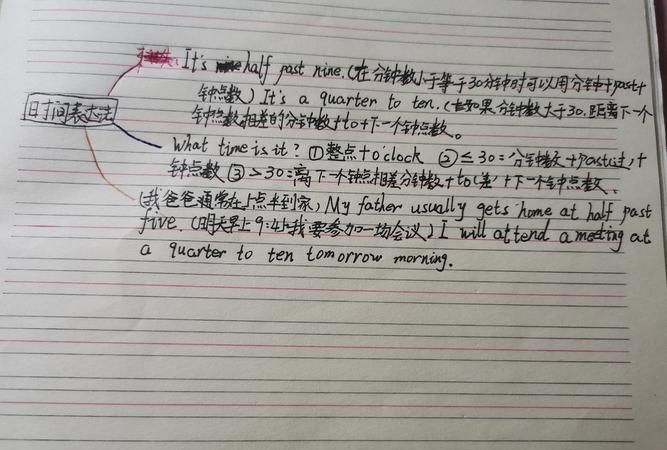 时间表达法
It's half past nine.(在分钟数小于等于30分钟时可以用分钟+past+
钟点数) It's a quarter to ten.(如果分钟数大于30,距离下一个
钟点数相差的分钟数+to+下一个钟点数。
What time is it? ①整点+o'clock ②≤30:分钟数+past(过)+
钟点数 ③>30:离下一个钟点相差分钟数+to(差)+下一个钟点数.
(我爸爸通常在 点半到家) My father usually gets home at half past
five. (明天早上9:45我要参加一场会议) I will attend a meeting at
a quarter to ten tomorrow morning.